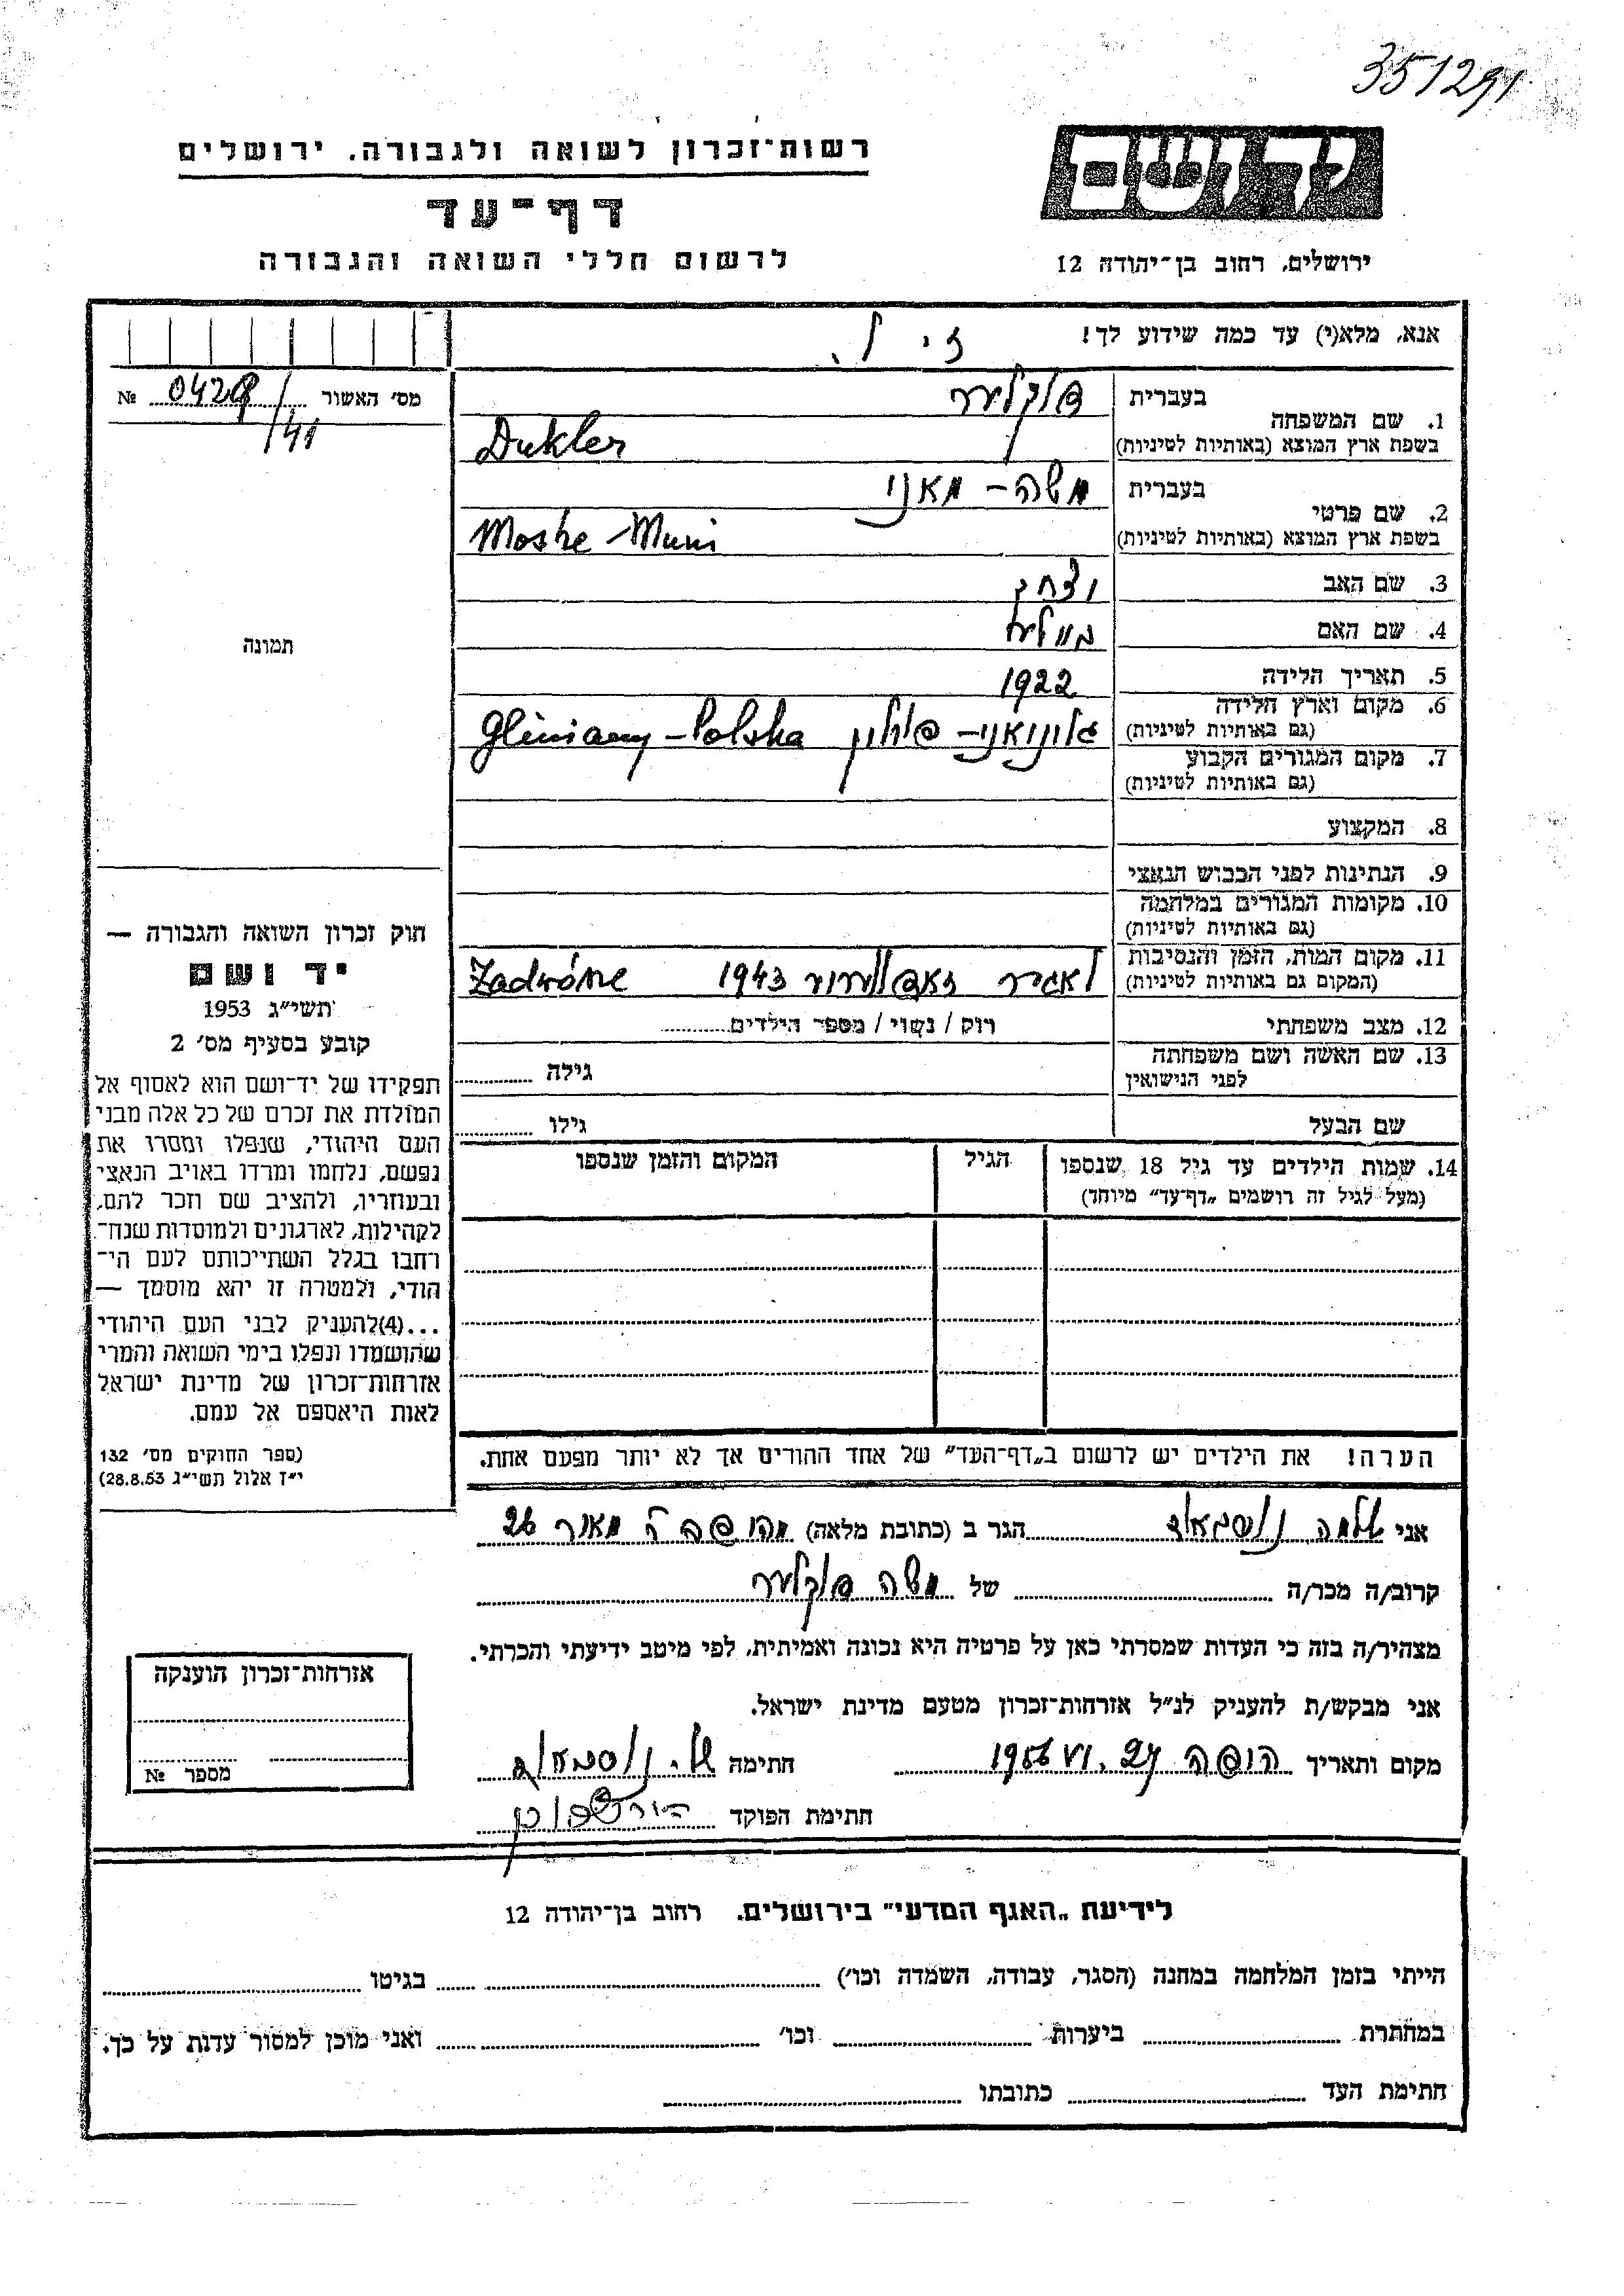 351291
רשות־זכרון לשואה ולגבורה. ירושלים
יד ושם
דף־עד
לרשום חללי השואה והגבורה
ירושלים, רחוב בן־יהודה 12
אנא, מלא(י) עד כמה שידוע לך!
מס׳ האשור № 0428/41
1. שם המשפחה
בעברית דוקלער
בשפת ארץ המוצא (באותיות לטיניות) Dukler
2. שם פרטי
בעברית משה - מאני
בשפת ארץ המוצא (באותיות לטיניות) Moshe Muni
3. שם האב יצחק
4. שם האם
5. תאריך הלידה 1922
6. מקום וארץ הלידה
(גם באותיות לטיניות) גלוניאני - פולין Gliniany - Polska
7. מקום המגורים הקבוע
(גם באותיות לטיניות)
8. המקצוע
9. הנתינות לפני הכבוש הנאצי
10. מקומות המגורים במלחמה
(גם באותיות לטיניות)
11. מקום המות, הזמן והנסיבות
(המקום גם באותיות לטיניות) לאגיר 1943 Zadwórze
12. מצב משפחתי רוק / נשוי / מספר הילדים
13. שם האשה ושם משפחתה
לפני הנישואין
גילה
שם הבעל גילו
14. שמות הילדים עד גיל 18 שנספו
(מעל לגיל זה רושמים „דף־עד״ מיוחד)
הגיל
המקום והזמן שנספו
הערה! את הילדים יש לרשום ב„דף־העד״ של אחד ההורים אך לא יותר מפעם אחת.
תמונה
חוק זכרון השואה והגבורה —
יד ושם
תשי״ג 1953
קובע בסעיף מס׳ 2
תפקידו של יד־ושם הוא לאסוף אל
המולדת את זכרם של כל אלה מבני
העם היהודי, שנפלו ומסרו את
נפשם, נלחמו ומרדו באויב הנאצי
ובעוזריו, ולהציב שם וזכר להם,
לקהילות, לארגונים ולמוסדות שנח־
רחבו בגלל השתייכותם לעם הי־
הודי, ולמטרה זו יהא מוסמך —
...(4)להעניק לבני העם היהודי
שהושמדו ונפלו בימי השואה והמרי
אזרחות־זכרון של מדינת ישראל
לאות היאספם אל עמם.
(ספר החוקים מס׳ 132
י״ז אלול תשי״ג 28.8.53)
אני נוסבאום הגר ב (כתובת מלאה) 26
קרוב/ה מכר/ה של משה דוקלער
מצהיר/ה בזה כי העדות שמסרתי כאן על פרטיה היא נכונה ואמיתית, לפי מיטב ידיעתי והכרתי.
אני מבקש/ת להעניק לנ״ל אזרחות־זכרון מטעם מדינת ישראל.
מקום ותאריך חיפה 27.VI 1956 חתימה
חתימת הפוקד
אזרחות־זכרון הוענקה
מספר №
לידיעת „האגף המדעי״ בירושלים. רחוב בן־יהודה 12
הייתי בזמן המלחמה במחנה (הסגר, עבודה, השמדה וכו׳) בגיטו
במחתרת ביערות וכו׳ ואני מוכן למסור עדות על כך.
חתימת העד כתובתו